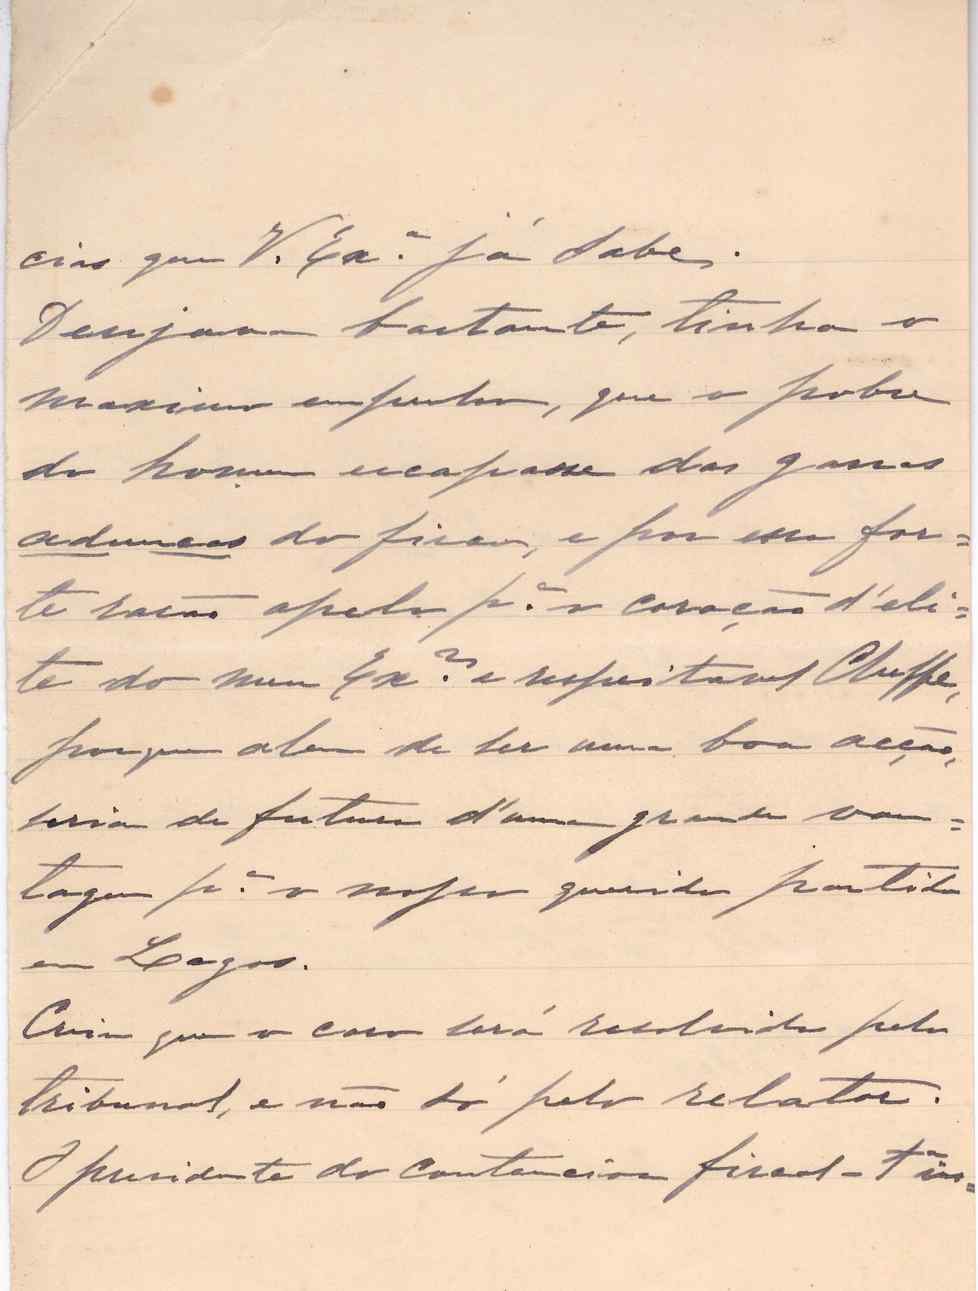 cias que V. Ex.ª já sabe.
Desejava bastante, tinha o
maximo empenho, que o pobre
do homem escapasse das garras
aduncas do fisco, e por essa for=
te razão apelo p.ª o coração d'eli=
te do meu Ex.mo e respeitavel Cheffe,
porque alem de ser uma boa acção,
seria de futuro d'uma grande van=
tagem p.ª o nosso querido partido
em Lagos.
Creia que o caso será resolvido pelo
tribunal, e não só pelo relator.
O presidente do contencioso fiscal -